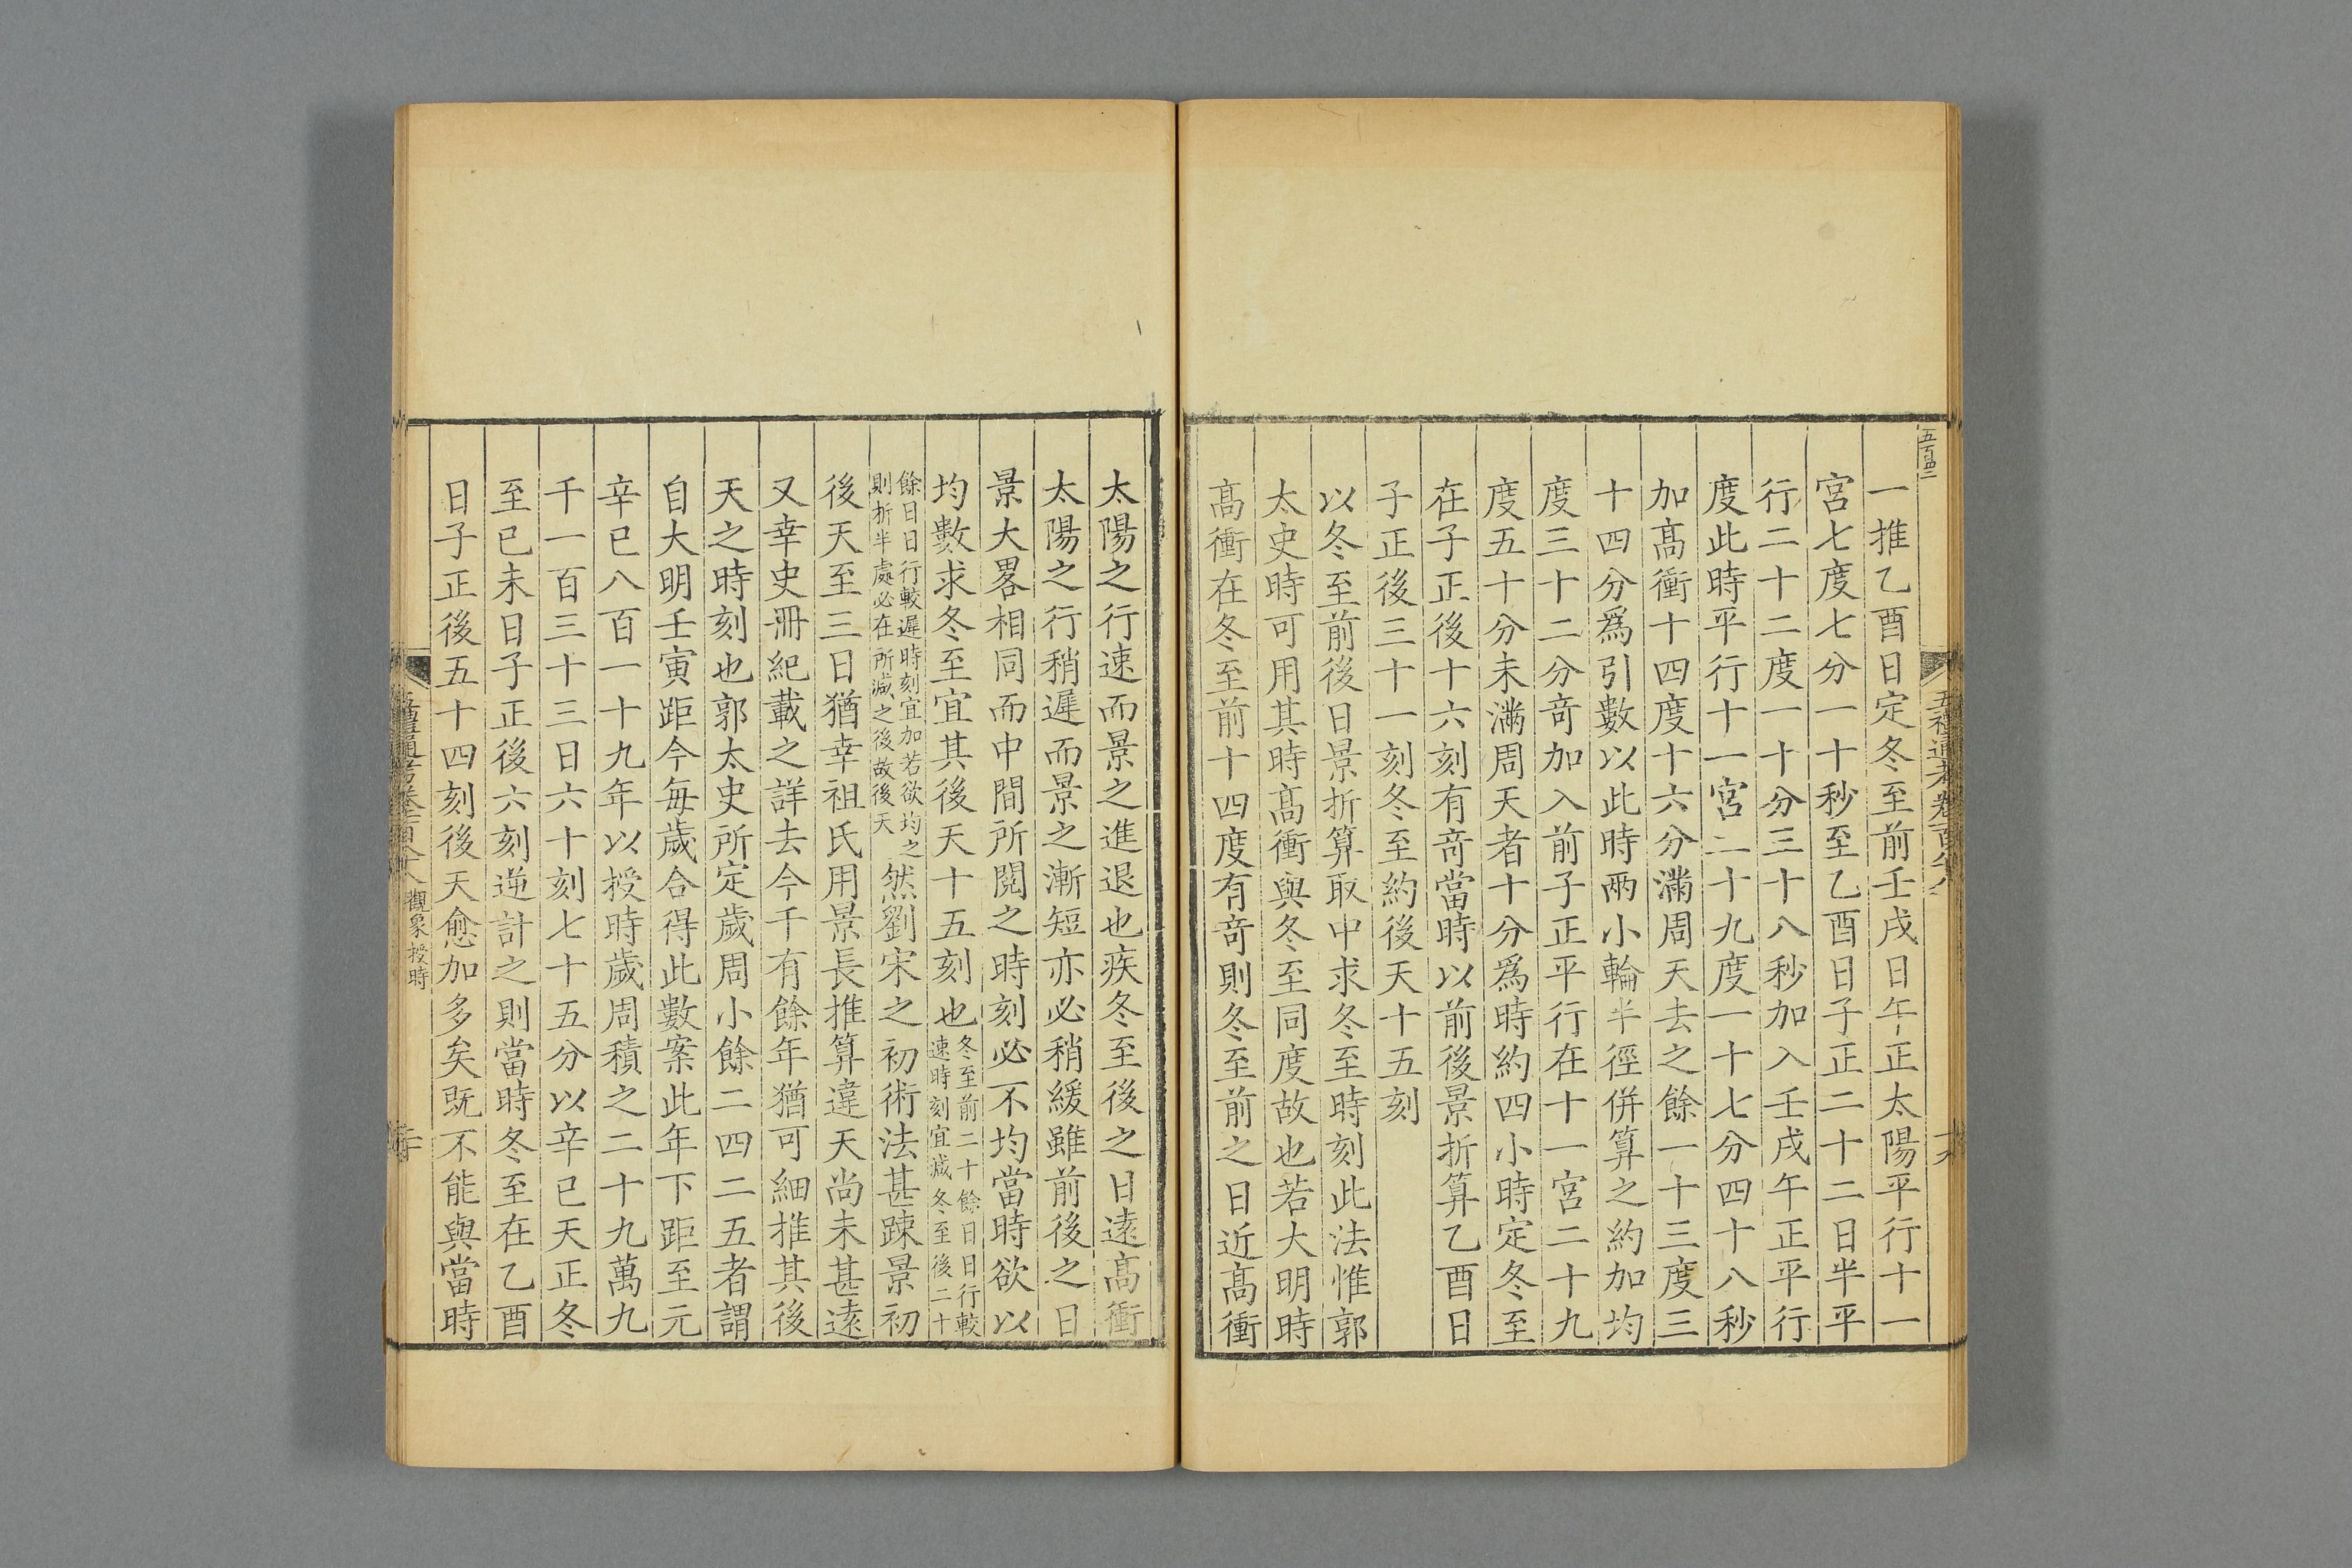 一推乙酉日定冬至前壬戌日午正太陽平行十一
宮七度七分一十秒至乙酉日子正二十二日半平
行二十二度一十分三十八秒加入壬戌午正平行
度此時平行十一宮二十九度一十七分四十八秒
加髙衝十四度十六分滿周天去之餘一十三度三
十四分爲引數以此時兩小輪半徑併算之約加均
度三十二分竒加入前子正平行在十一宮二十九
度五十分未滿周天者十分爲時約四小時定冬至
在子正後十六刻有竒當時以前後景折算乙酉日
子正後三十一刻冬至約後天十五刻
以冬至前後日景折算取中求冬至時刻此法惟郭
太史時可用其時髙衝與冬至同度故也若大明時
髙衝在冬至前十四度有竒則冬至前之日近髙衝
太陽之行速而景之進退也疾冬至後之日逺髙衝
太陽之行稍遲而景之漸短亦必稍緩雖前後之日
景大畧相同而中間所閱之時刻必不均當時欲以
均數求冬至宜其後天十五刻也
冬至前二十餘日日行較
速時刻宜減冬至後二十
餘日日行較遲時刻宜加若欲均之
則折半處必在所減之後故後天
然劉宋之初術法甚踈景初
後天至三日猶幸祖氏用景長推算違天尚未甚逺
又幸史冊紀載之詳去今千有餘年猶可細推其後
天之時刻也郭太史所定歲周小餘二四二五者謂
自大明壬寅距今每歲合得此數案此年下距至元
辛巳八百一十九年以授時歲周積之二十九萬九
千一百三十三日六十刻七十五分以辛巳天正冬
至已未日子正後六刻逆計之則當時冬至在乙酉
日子正後五十四刻後天愈加多矣既不能與當時
觀象授時